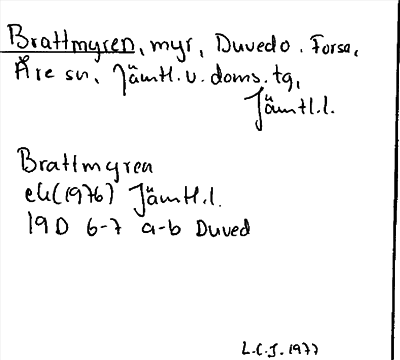 Brattmyren, myr, Duved o. Forsa,
Åre sn, Jämtl. v. doms. tg,
Jämtl.l.
Brattmyren
ek(1976) Jämtl.l.
19D 6-7 a-b Duved
L.C.J. 1977